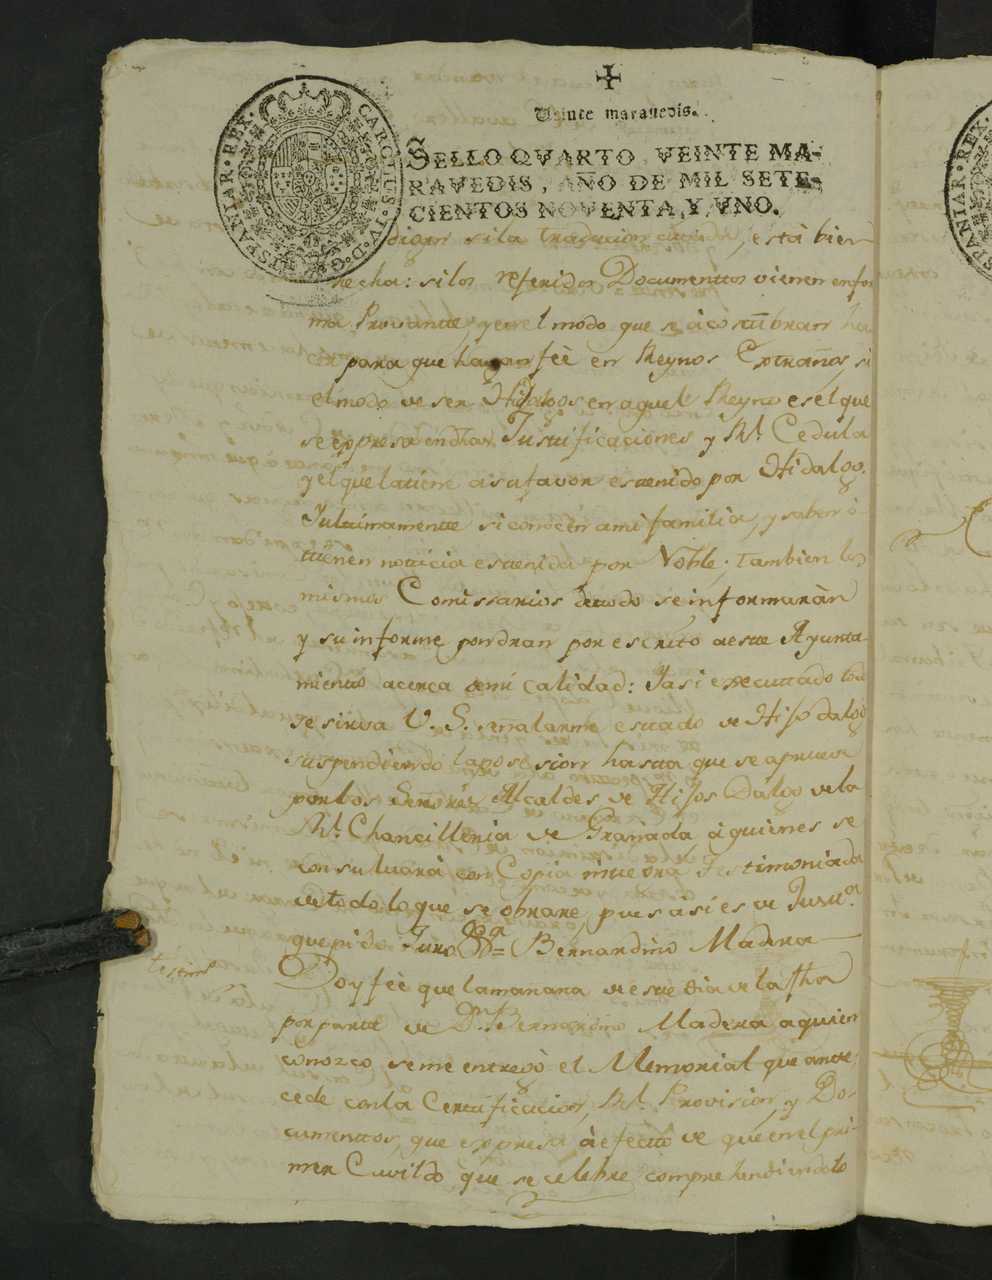 CAROLUS · IV · D · G · HISPANIAR · REX ·
Veinte maravedis.
SELLO QVARTO, VEINTE MA-
RAVEDIS, AÑO DE MIL SETE-
CIENTOS NOVENTA, Y, VNO.
digan si la traducion citada, està bien
hecha: si los referidos Documenttos vienen en for
ma Provantte, y en el modo que se àcostũbran ha
para que hagan feè en Reynos Extraños, si
el modo de ser Hidalgos en aquel Reyno es el que
se expresa en dhas Justificaciones y Rl. Cedula
y el que la tiene a su favor es tenido por Hidalgo.
Y ultimamentte si conocen a mi familia, y saben ò
tienen noticia es tenida por Noble; tambien los
mismos Comissarios de todo se informaràn
y su informe pondran por escrito a estte Ayunta-
miento acerca de mi calidad: Y asi executtado todo
se sirva V. S. señalarme esttado de Hijo dalgo
suspendiendo la posesion hasta que se aprueve
por los Señores Alcaldes de Hijos Dalgo de la
Rl. Chancilleria de Granada à quienes se
consultarà con Copia integra Testimoniada
de todo lo que se obrare, pues asi es de Justa.
que pido Juro &a = Bernardino Madera
testimo
Doy feè que la mañana de estte dia de la fha
por partte de Dn. Bernardino Madera a quien
conozco, se me entregò el Memorial que antte
cede con la Certtificacion, Rl. Provision, y Do-
cumenttos, que expresa à efectto de que en el pri-
mer Cavildo que se celebre, comprehendiendolo